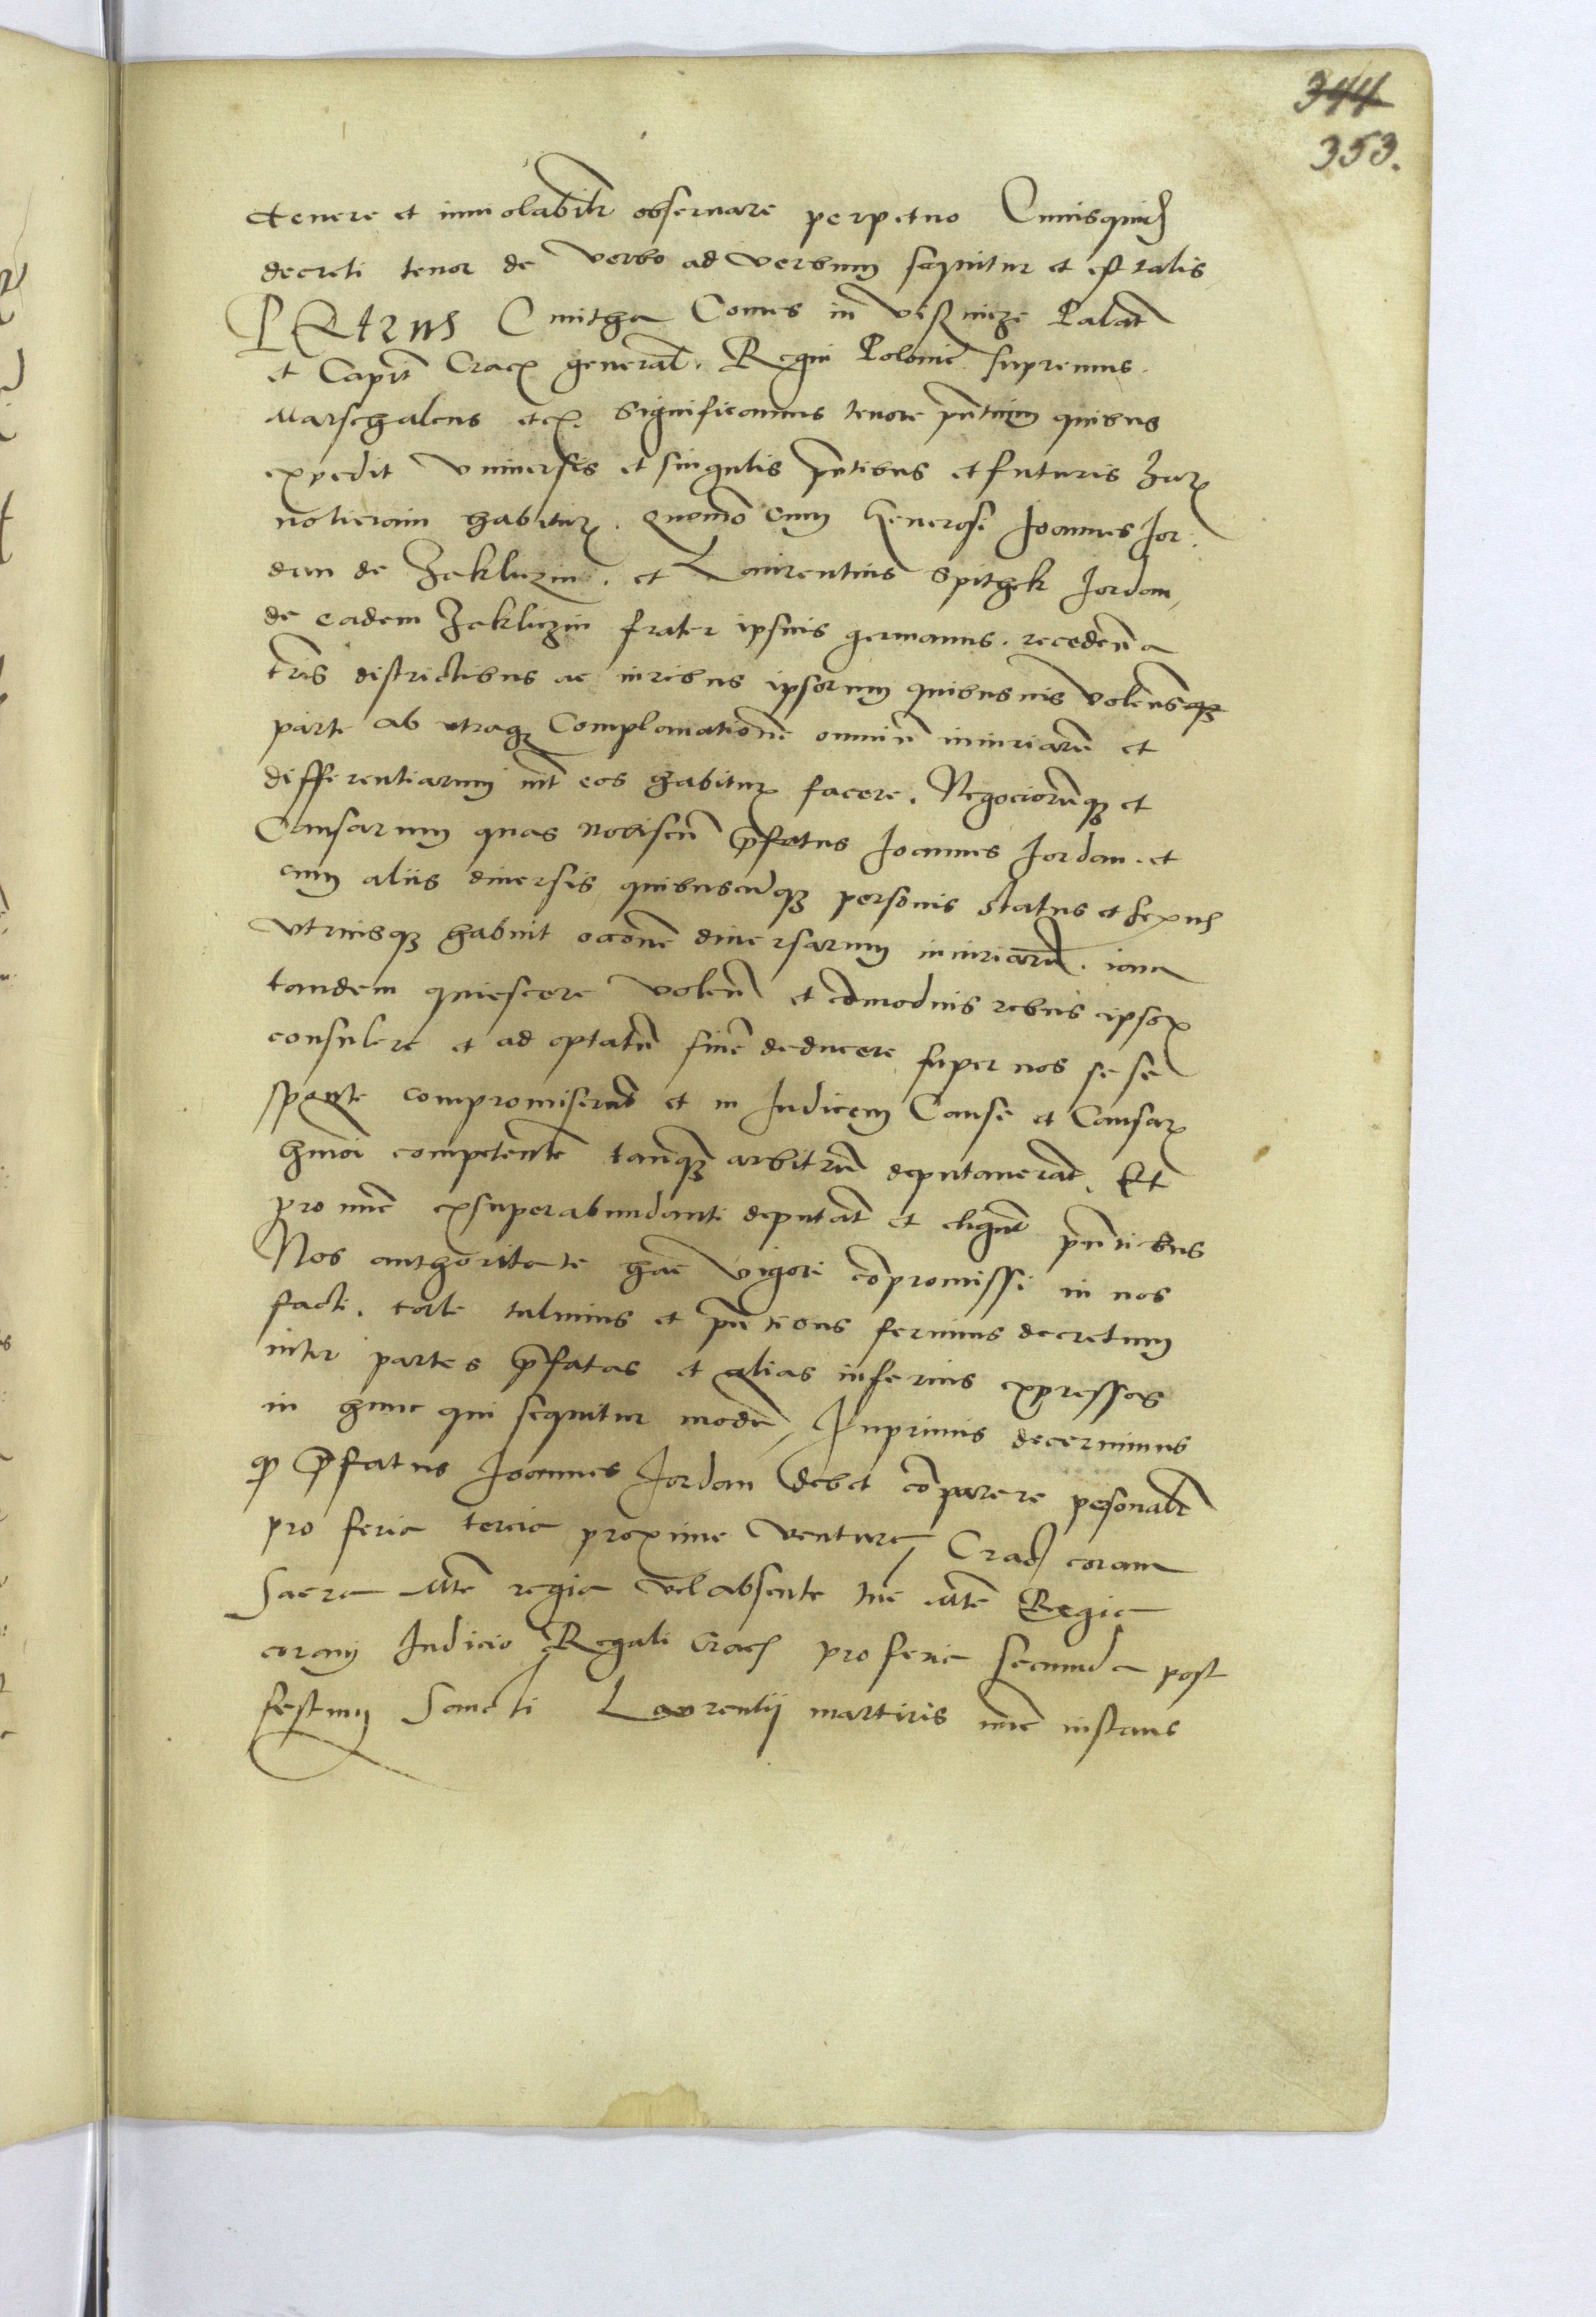 344
353.
tenere et inuiolabilr obseruare perpetuo Cuiusquid
decreti tenor de verbo ad verbum sequitur et est talis
PEtrus Cmitha Comes in visnicze Palat
et Capit Crac general. Regni Polonie supremus
Marschalcus etc. Significamus tenore pntium quibus
expedit vniuersis et singulis pntibus et futuris har
noticiam habitur. Quomo cum Generosi Joannes Jor
dan de Zakluzin. et Laurentius Spithek Jordan
de eadem Zakliczin frater ipsius germanus. receden a
tris districtibus ac iuribus ipsorum quibusuis volensqz
parte ab utraqz Complanatione omniu iniuriaru et
differentiarum int eos habitur facere. Negociorumqz et
Causarum quas nobiscu pfatus Joannes Jordan. et
cum aliis diuersis quibuscuqz personis status et sexus
vtriusqz habuit occone diuersarum iniuriaru. iam
tandem quiescere volen et comodius rebus ipsor
consulere et ad optatu fine deducere super nos se se
sponte compromiserut et in Judicem Cause et Causar
hmoi competente tanqz arbitru deputauerut. Et
pro nuc exsuperabundanti deputat et eligut pntibus
Nos authoritate hac vigore compromissi in nos
facti. tale tulimus et pntibus ferimus decretum
inter partes pfatas et alias inferius expressas
in hunc qui sequitur modu, Inprimis decernimus
qd pfatus Joannes Jordan debet comparere personalr
pro feria tercia proxime ventura Crac coram
Sacra Mte regia vel absente tuc Mte Regia
coram Judicio Regali Crac pro feria secunda post
festum Sancti Laurentii martiris nuc instans